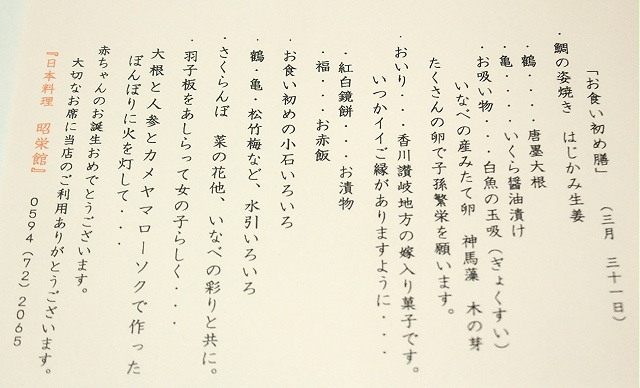 「お食い初め膳」　（三月　三十一日）
・鯛の姿焼き　はじかみ生姜
・鶴・・・・唐墨大根
・亀・・・・いくら醤油漬け
・お吸い物・・・白魚の玉吸（ぎょくすい）
いなべの産みたて卵　神馬藻　木の芽
たくさんの卵で子孫繁栄を願います。
・おいり・・・香川讃岐地方の嫁入り菓子です。
いつかイイご縁がありますように・・・
・紅白鏡餅・・・お漬物
・福・・お赤飯
・お食い初めの小石いろいろ
・鶴・亀・松竹梅など、水引いろいろ
・さくらんぼ　菜の花他、いなべの彩りと共に。
・羽子板をあしらって女の子らしく・・・
大根と人参とカメヤマローソクで作った
ぼんぼりに火を灯して・・・
赤ちゃんのお誕生おめでとうございます。
大切なお席に当店のご利用ありがとうございます。
『日本料理　昭栄館』　0594（72）2065